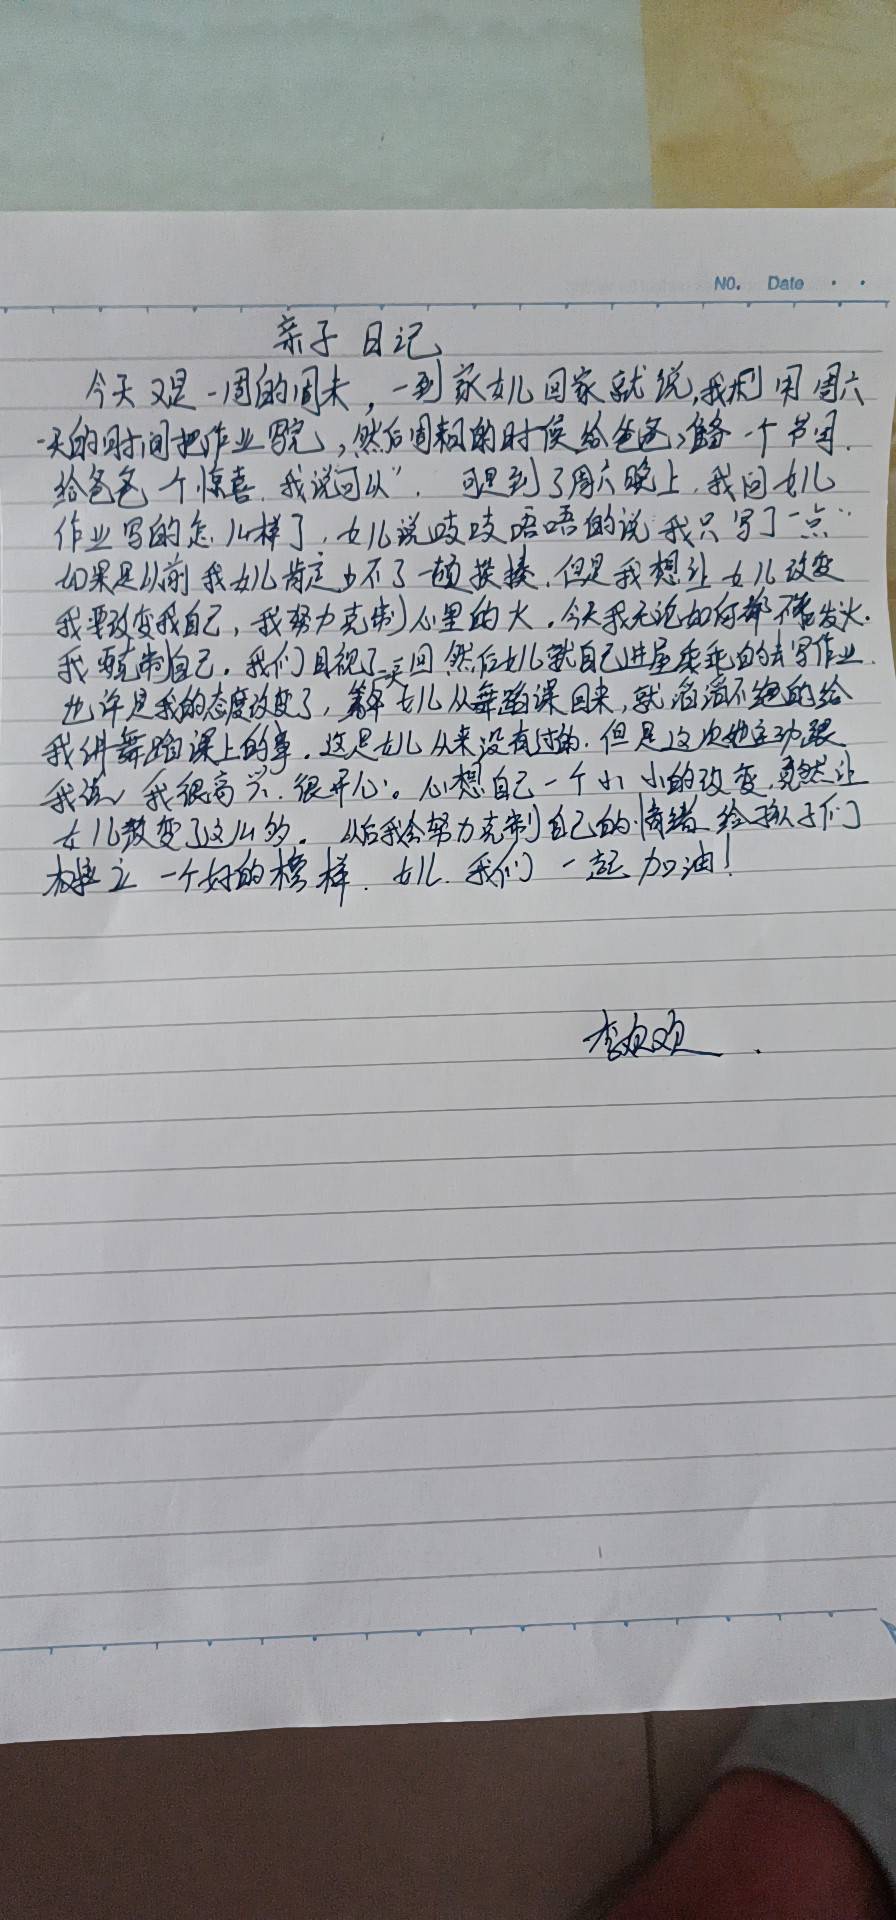 NO. Date
亲子日记
今天又是一周的周末，一到家女儿回家就说，我利用周六
一天的时间把作业写完，然后周日的时候给爸爸准备一个节目.
给爸爸一个惊喜.我说可以”. 可是到了周六晚上,我问女儿
作业写的怎么样了,女儿说吱吱唔唔的说我只写了一点”
如果是以前我女儿肯定少不了一顿挨揍.但是我想让女儿改变
我要改变我自己,我努力克制心里的火.今天我无论如何都不能发火.
我要克制自己.我们目视了一笑回然后女儿就自己进屋乖乖的去写作业.
也许是我的态度改变了,女儿从舞蹈课回来,就滔滔不绝的给
我讲舞蹈课上的事.这是女儿从来没有过的.但是这次她主动跟
我说,我很高兴.很开心。心想自己一个小小的改变,竟然让
女儿改变了这么多。以后我会努力克制自己的情绪给孩子们
树立一个好的榜样.女儿.我们一起加油!
李欢欢.